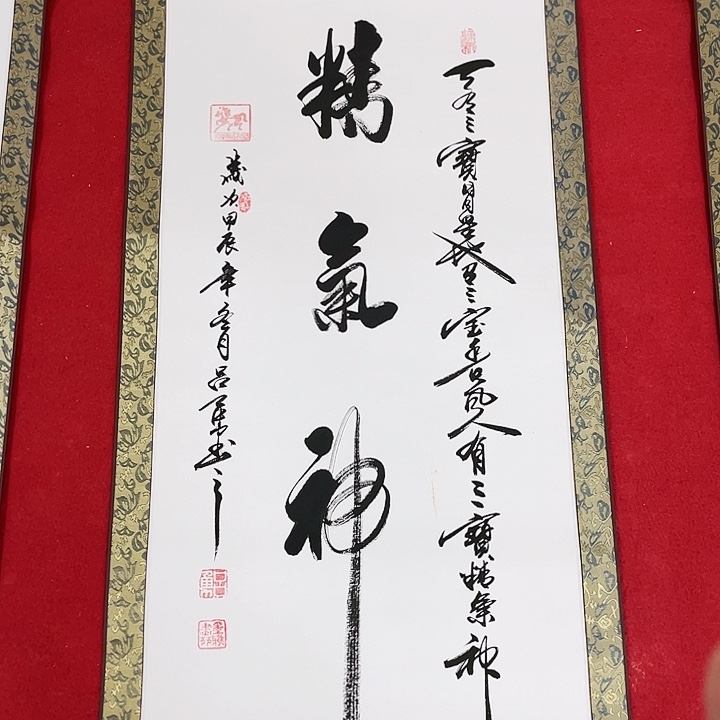 天有三寶日月星地有三宝水火风人有三寶精氣神
精氣神
歲次甲辰年冬月吕军书之